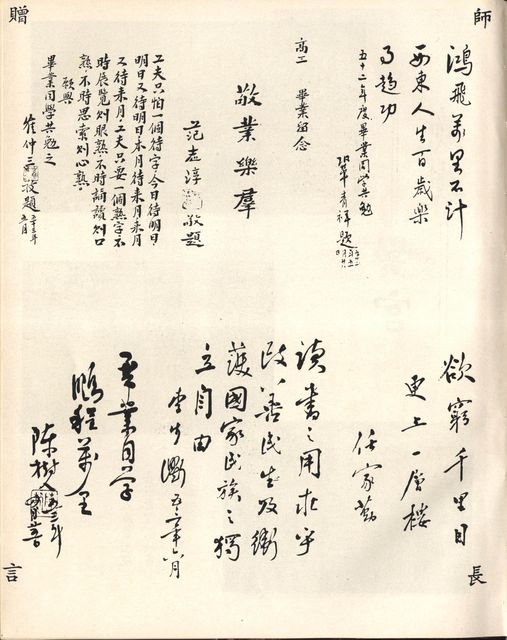 師長
贈言
鴻飛萬里不計
西東人生百歲樂
事趨功
五十二年度畢業同學共勉
高工 畢業留念
敬業樂群
范 淳 敬題
工夫只怕一個待字今日待明日
明日又待明日本月待來月來月
又待來月工夫只要一個熟字不
時展覽則眼熟不時誦讀則口
熟不時思索則心熟
願與
畢業同學共勉之
崔仲三敬題 五十二年五月
欲窮千里目
更上一層樓
任家勤
讀書之用在乎
改善民生及衛
護國家民族之獨
立自由
五二年六月
畢業同學
鵬程萬里
陳樹人